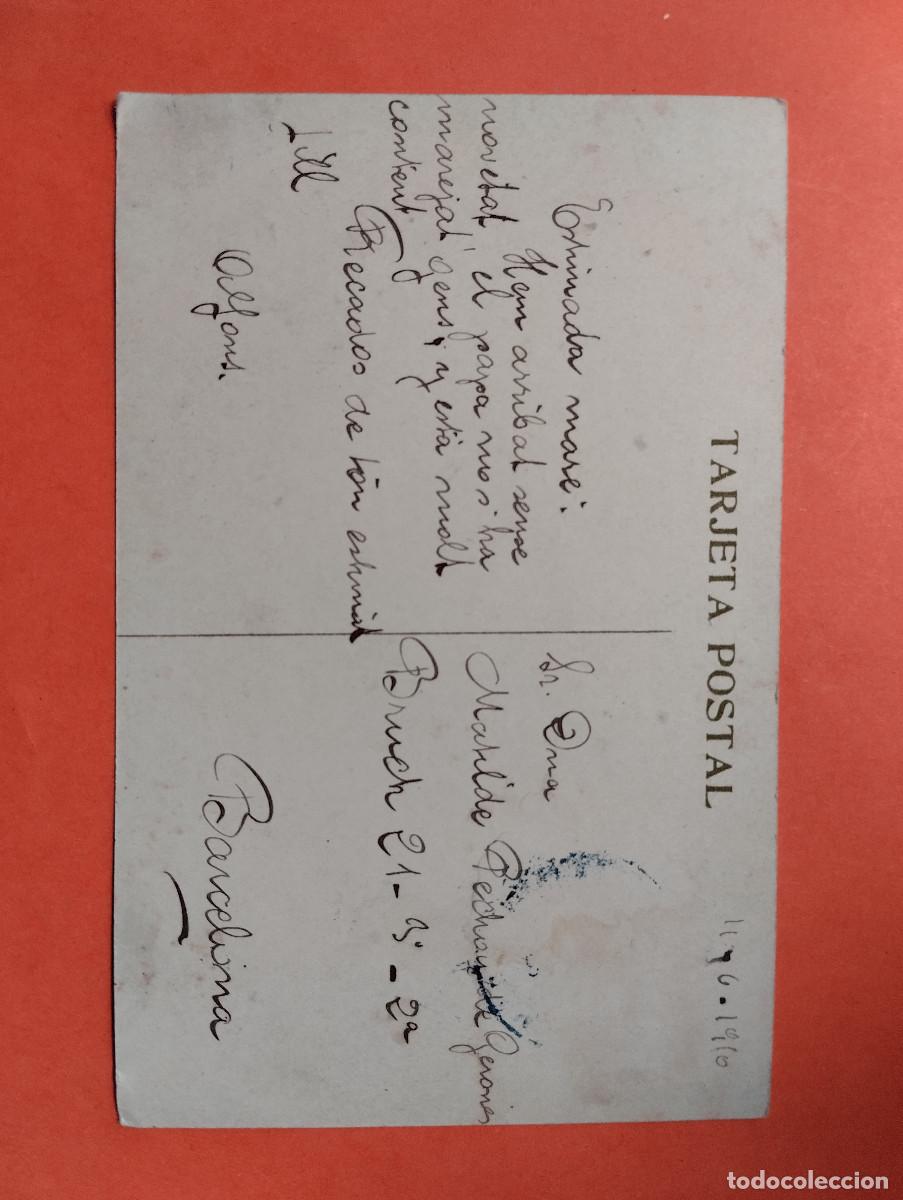 TARJETA POSTAL
11.6.1910
Estimada mare:
Hem arribat sense
novetat, el papa no s'ha
marejat gens, y està molt
content
Recados de tón estimat
fill
Alfons.
Sr. Dna
Matilde de Geronès
Bruch 21-3º-2ª
Barcelona
todocoleccion